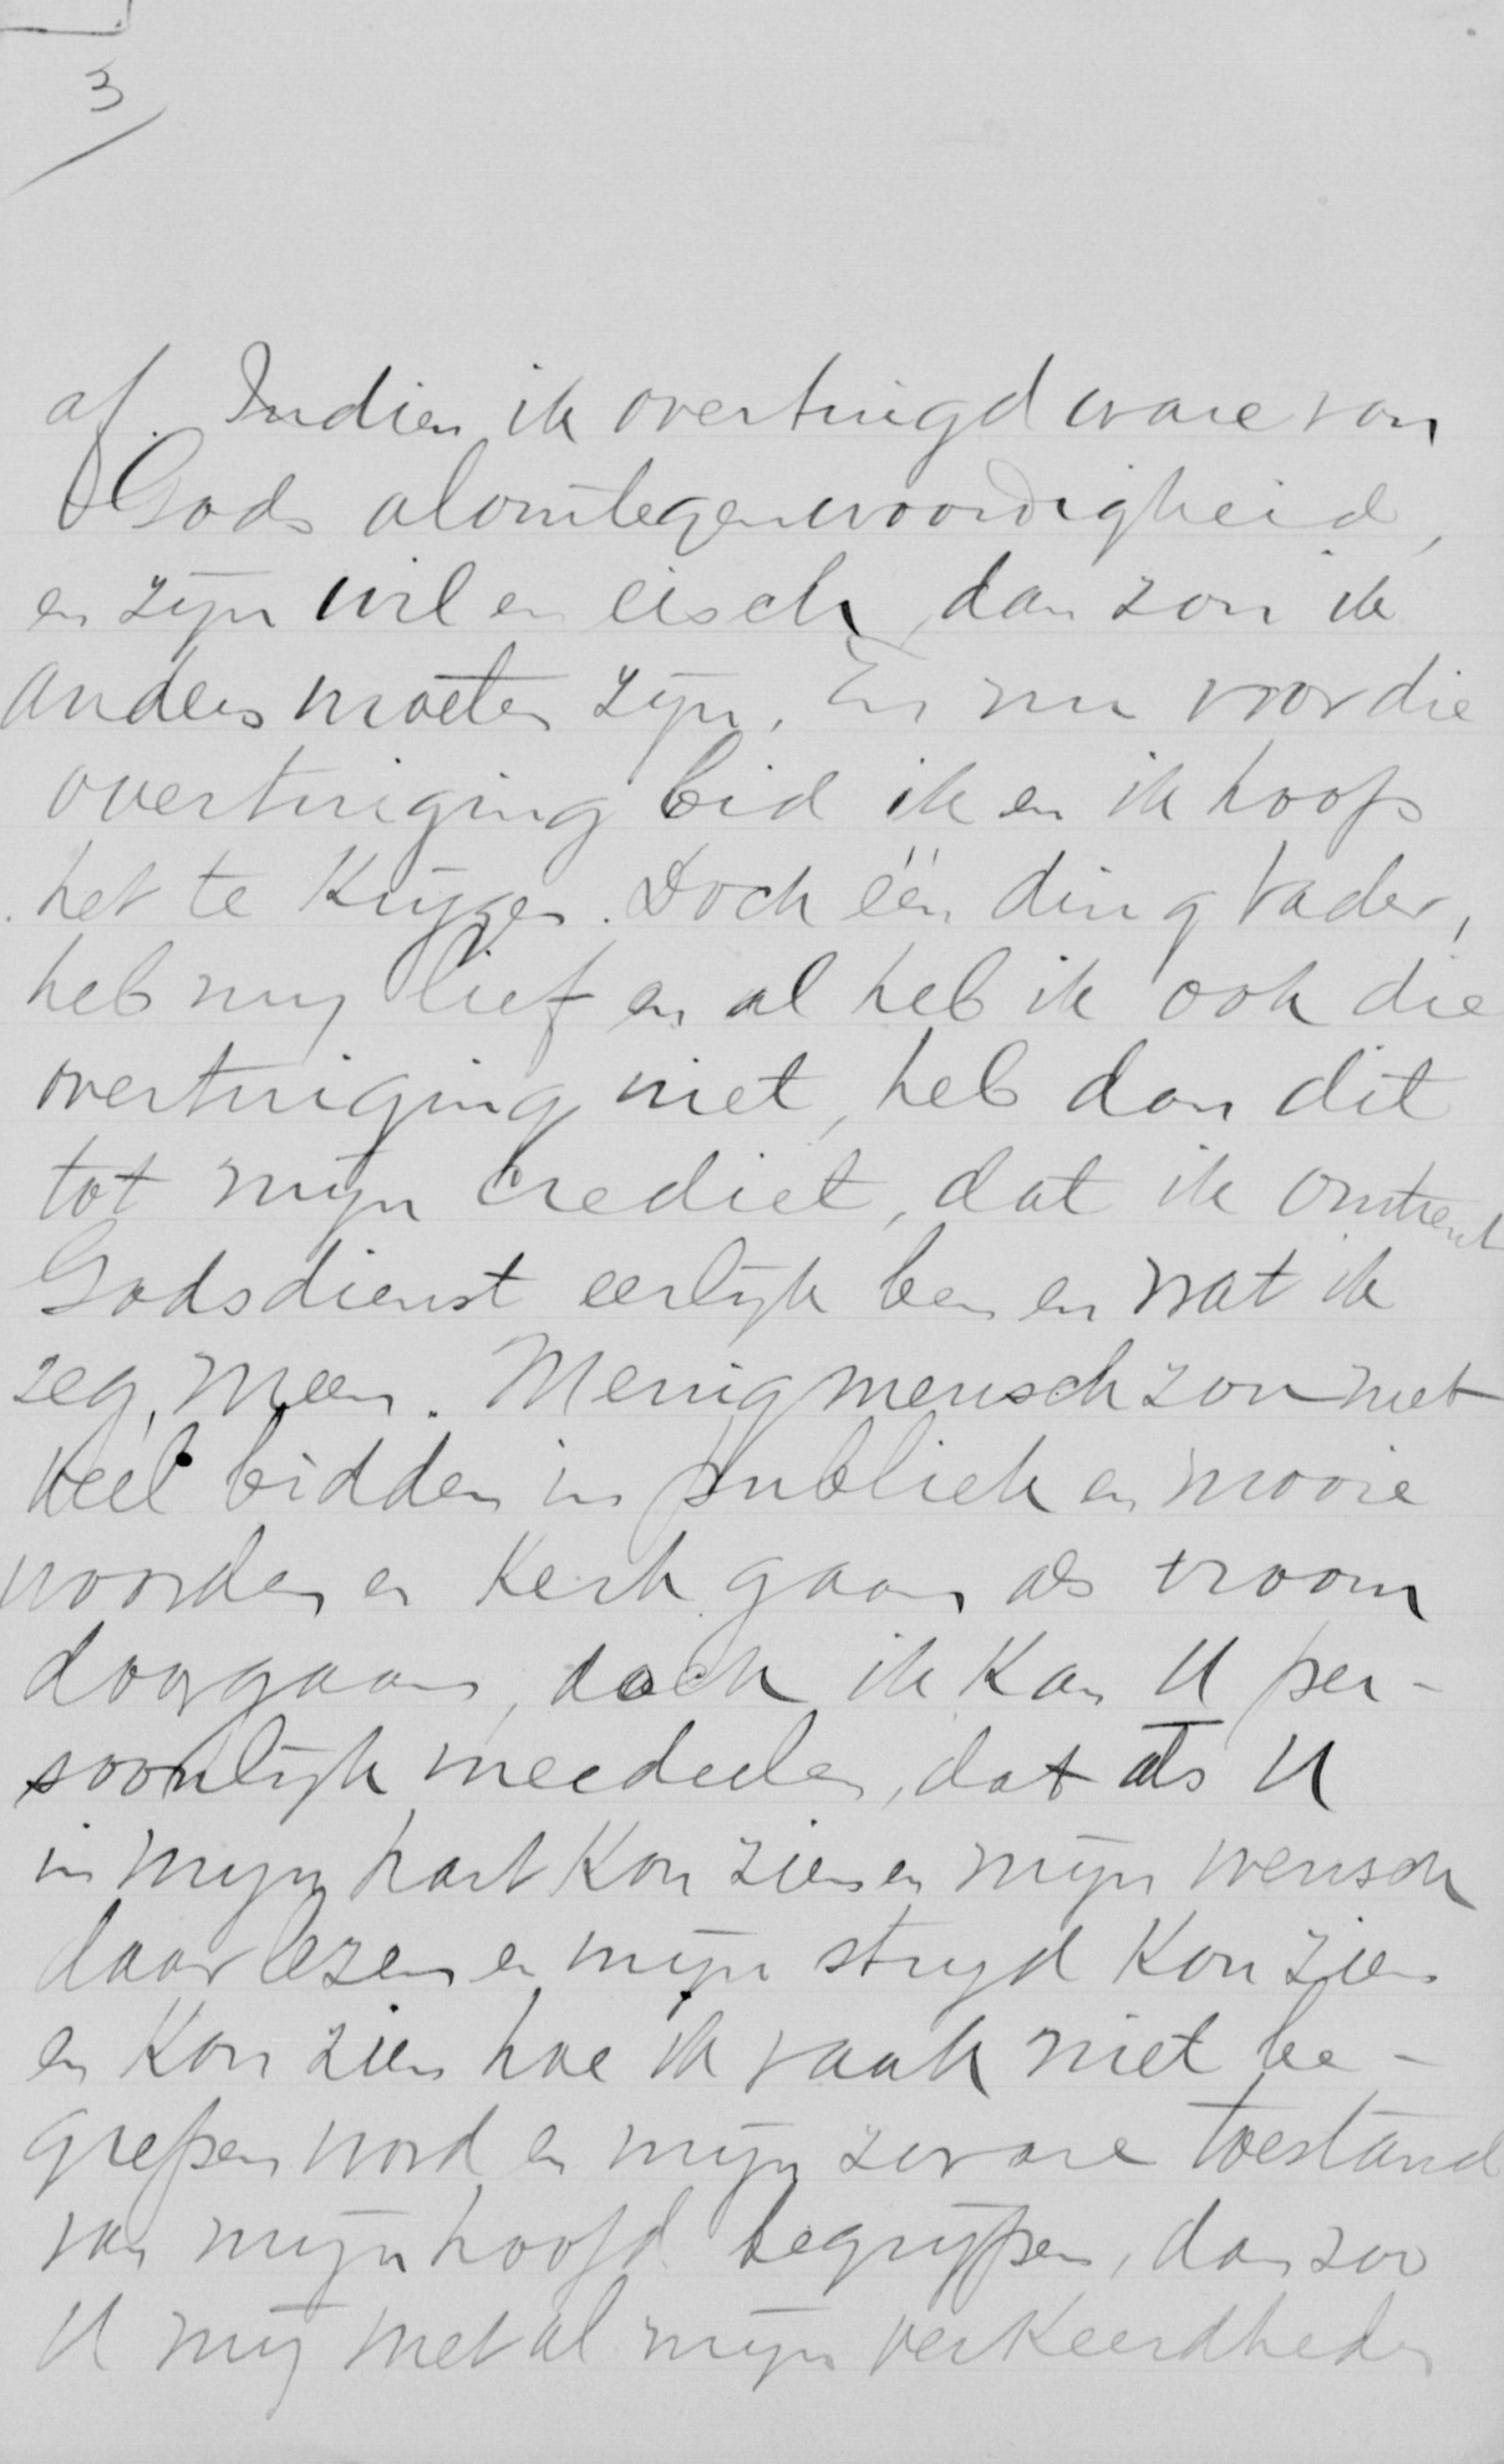 3
af. Indien ik overtuigd ware van
Gods alomtegenwoordigheid,
en zijn wil en eisch, dan zou ik
anders moeten zijn. En nu voor die
overtuiging bid ik en ik hoop
het te krijgen. Doch één ding Vader,
heb mij lief en al heb ik ook die
overtuiging niet, heb dan dit
tot mijn crediet, dat ik omtrent
Godsdienst eerlijk ben en wat ik
zeg, meen. Menig mensch zou met
veel bidden in publiek en mooie
woorden en Kerk gaan als vroom
doorgaan, doch ik kan U per-
soonlijk meedeelen, dat als U
in mijn hart kon zien en mijn wensch
daar lezen en mijn strijd kon zien
en kon zien hoe ik vaak niet be-
grepen word en mijn zware toestand
van mijn hoofd begrijpen, dan zou
U mij met al mijn verkeerdheden